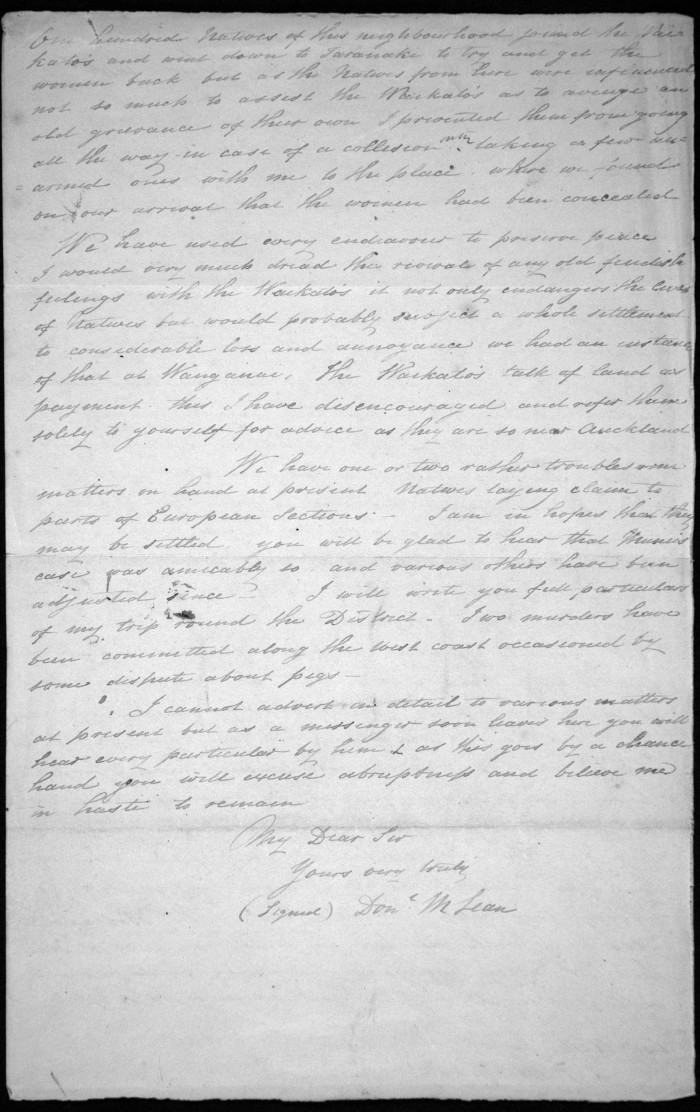 One hundred Natives of this neighbourhood joined the Wai-
katos and went down to Taranaki to try and get the
women back but as the Natives from here were influenced
not so much to assist the Waikatos as to avenge an
old grievance of their own I prevented them from going
all the way in case of a collision only taking a few un-
=armed ones with me to the place where we found
on our arrival that the women had been concealed
We have used every endeavour to preserve peace
I would very much dread the revival of any old feudish
feelings with the Waikatos it not only endangers the lives
of Natives but would probably subject a whole settlement
to considerable loss and annoyance we had an instance
of that at Wanganui, The Waikatos talk of land as
payment this I have discouraged and refer them
solely to yourself for advice as they are so near Auckland
We have one or two rather troublesome
matters on hand at present Natives laying claim to
parts of European Sections - I am in hopes that they
may be settled, you will be glad to hear that
case was amicably so and various others have been
adjusted since - I will write you full particulars
of my trip round the District - Two murders have
been committed along the West coast occasioned by
some dispute about pigs -
I cannot advert in detail to various matters
at present but as a messenger soon leaves here you will
hear every particular by him & as this goes by a chance
hand you will excuse abruptness and believe me
in haste to remain
My Dear Sir
Yours very truly
(Signed) Don. McLean